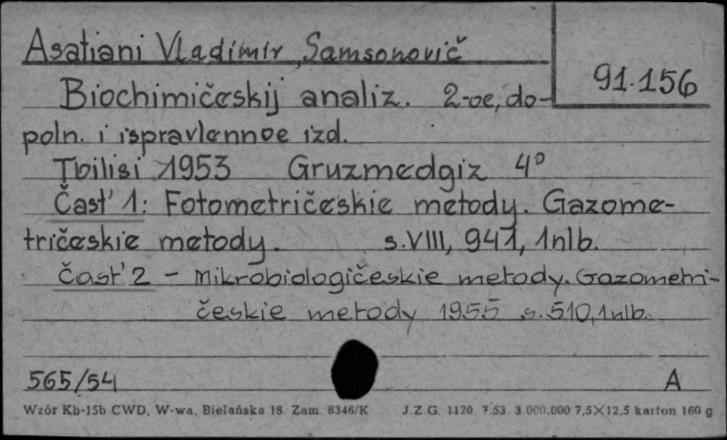 Asatiani Vladimir Samsonovič
91.156
Biochimičeskij analiz. 2-oe, do-
poln. i ispravlennoe izd.
Tbilisi 1953 Gruzmedgiz 4°
Čast' 1: Fotometričeskie metody. Gazome-
tričeskie metody. s. VIII, 941, 1nlb.
Čast' 2 - Mikrobiologičeskie metody. Gazometri-
českie metody 1955 s. 510, 1nlb.
565/54 A
Wzór Kb-15b CWD, W-wa, Bielańska 18. Zam. 8346/K J.Z.G. 1120. 7.53. 3.000.000 7,5×12,5 karton 160 g